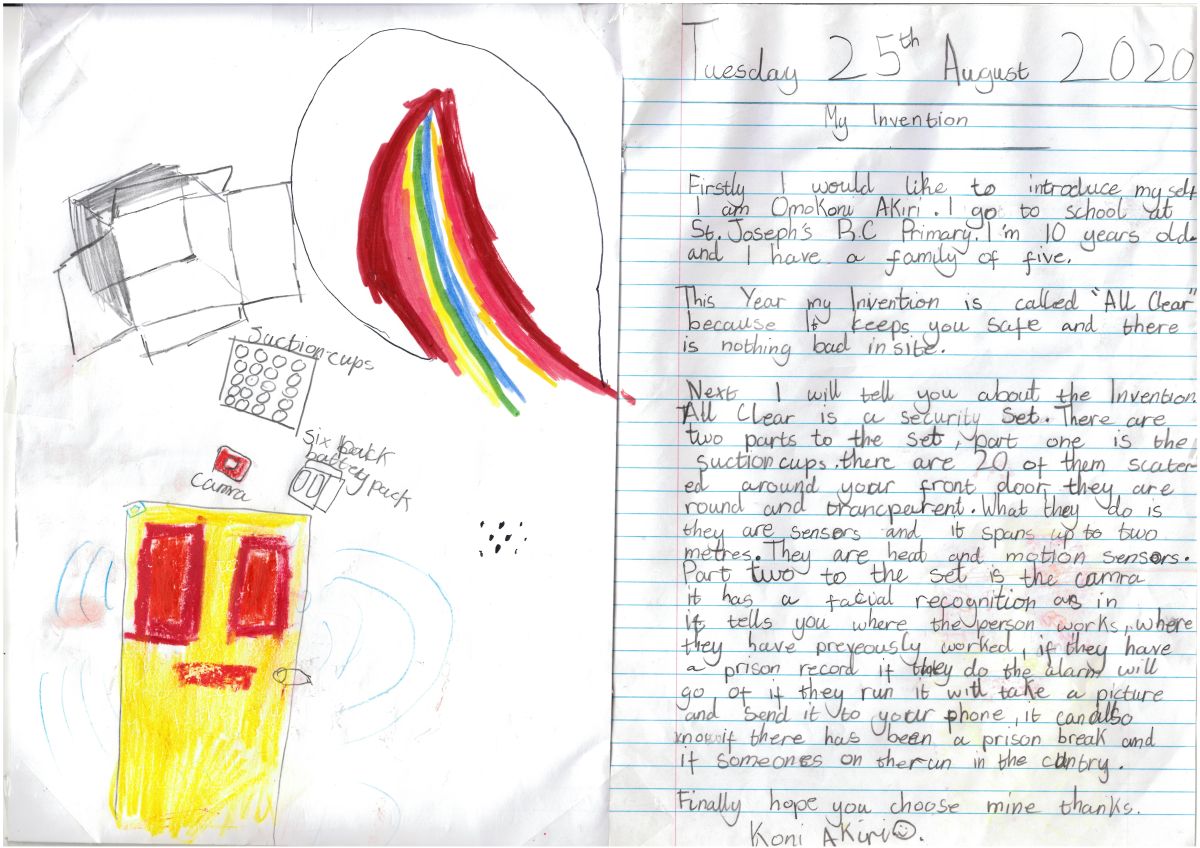 Suctioncups
Six pack
battery pack
Camra
Tuesday 25th August 2020
My Invention
Firstly I would like to introduce my self
I am Omokoni Akiri. I go to school at
St. Joseph's R.C Primary. I'm 10 years old.
and I have a family of five.
This Year my Invention is called "All Clear"
because It keeps you safe and there
is nothing bad in site.
Next I will tell you about the Invention
All Clear is a security Set. There are
two parts to the set, part one is the
suctioncups. there are 20 of them scater
ed around your front door they are
round and trancperent. What they do is
they are sensors and it spans up to two
metres. They are heat and motion sensors.
Part two to the set is the camra
it has a facial recognition as in
it tells you where the person works, where
they have preveously worked, if they have
a prison record if they do the alarm will
go of if they run it will take a picture
and send it to your phone, it can also
know if there has been a prison break and
if someones on the run in the cuntry.
Finally hope you choose mine thanks.
Koni Akiri☺.